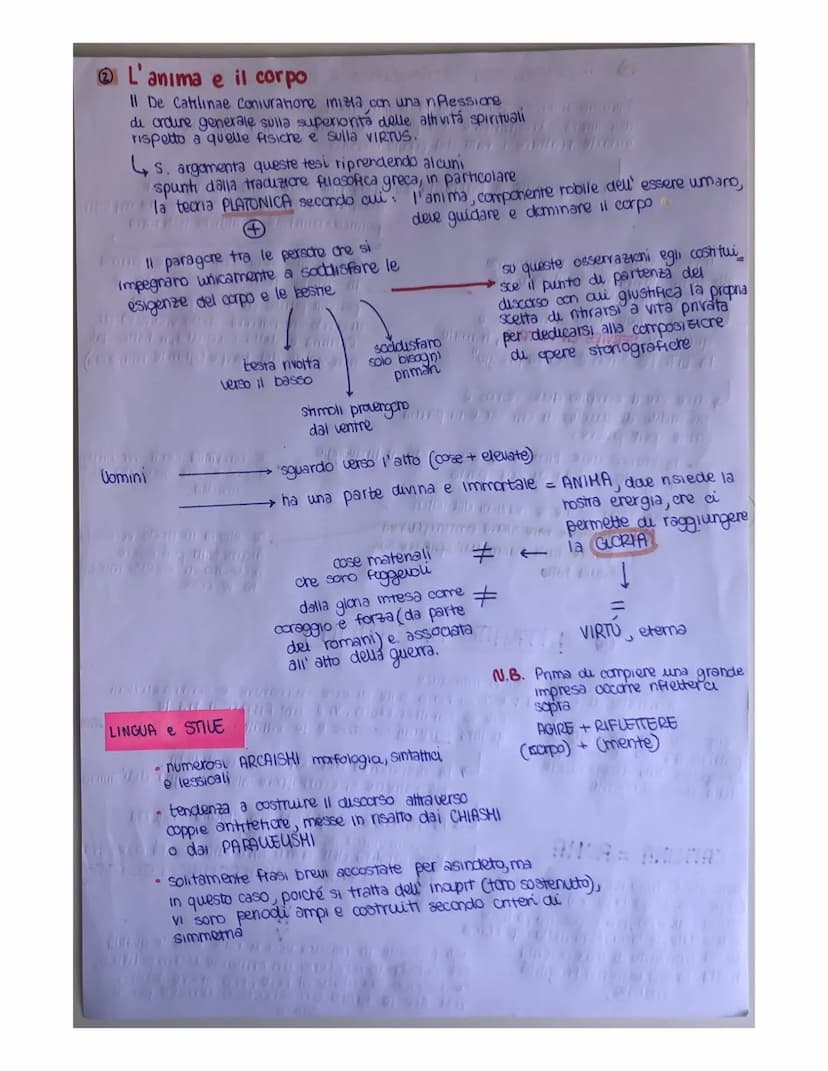 ② L'anima e il corpo
Il De Catilinae Coniuratione inizia con una riflessione
di ordine generale sulla superiorità delle attività spirituali
rispetto a quelle fisiche e sulla VIRTUS.
↳ S. argomenta queste tesi riprendendo alcuni
spunti dalla tradizione filosofica greca, in particolare
la teoria PLATONICA secondo cui: l'anima, componente nobile dell'essere umano,
deve guidare e dominare il corpo
+
Il paragone tra le persone che si
impegnano unicamente a soddisfare le
esigenze del corpo e le bestie
su queste osservazioni egli costitui_
sce il punto di partenza del
discorso con cui giustifica la propria
scelta di ritirarsi a vita privata
per dedicarsi alla composizione
di opere storiografiche
testa rivolta
verso il basso
stimoli provengono
dal ventre
soddisfano
solo bisogni
primari
Uomini → sguardo verso l'alto (cose + elevate)
→ ha una parte divina e immortale = ANIMA, dove risiede la
nostra energia, che ci
permette di raggiungere
la GLORIA
≠ ←
cose materiali
che sono fuggevoli
≠
dalla gloria intesa come
coraggio e forza (da parte
dei romani) e associata
all'atto della guerra.
↓
=
VIRTÙ, eterna
N.B. Prima di compiere una grande
impresa occorre rifletterci
sopra
AGIRE + RIFLETTERE
(corpo) + (mente)
LINGUA e STILE
• numerosi ARCAISMI morfologia, sintattici
e lessicali
• tendenza a costruire il discorso attraverso
coppie antitetiche, messe in risalto dai CHIASMI
o dai PARALLELISMI
• solitamente frasi brevi accostate per asindeto, ma
in questo caso, poiché si tratta dell'incipit (tono sostenuto),
vi sono periodi ampi e costruiti secondo criteri di
simmetria